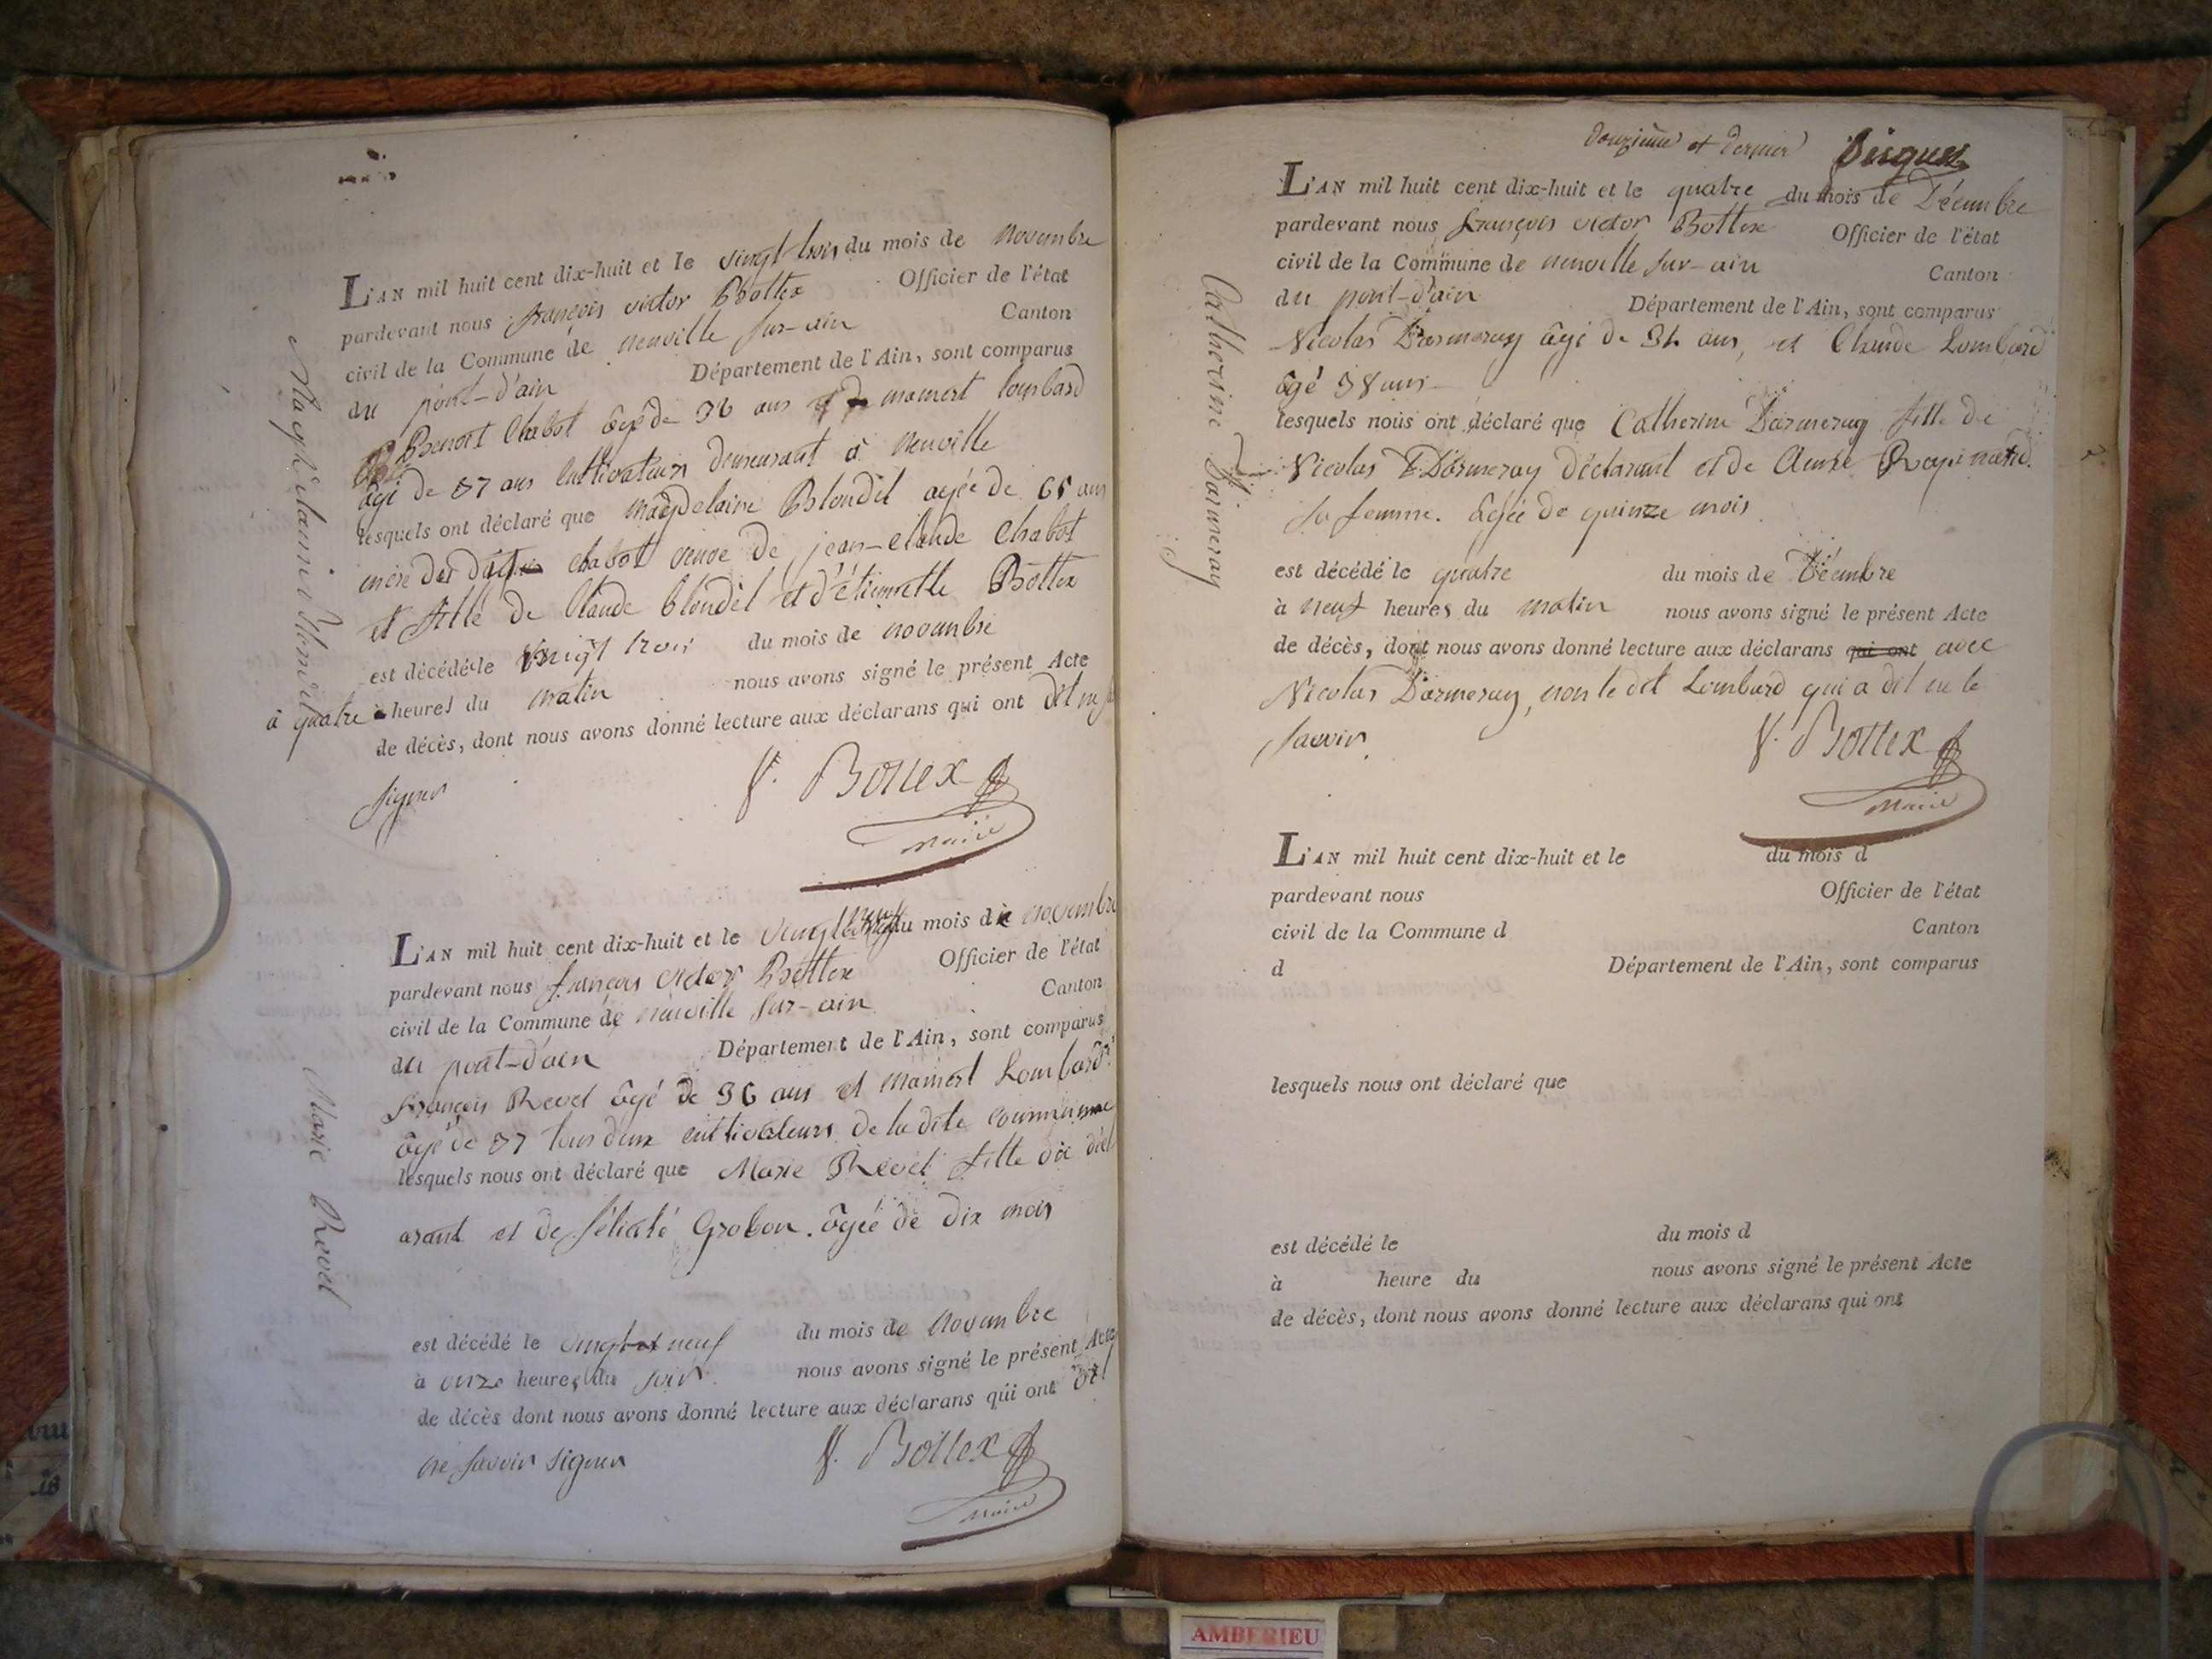 L'AN mil huit cent dix-huit et le vingt trois du mois de novembre
pardevant nous françois victor Bottex Officier de l'état
civil de la Commune de neuville sur-ain Canton
du pont-d'ain Département de l'Ain, sont comparus
Benoit Chabot âgé de 36 ans et mamert lombard
âgé de 57 ans cultivateurs demeurant à neuville
lesquels ont déclaré que magdelaine Blondel agée de 65 ans
mère du dit chabot veuve de jean-claude Chabot
et fille de Claude blondel et d'étiennette Bottex
est décédé le vingt trois du mois de novembre
à quatre heures du matin nous avons signé le présent Acte
de décès, dont nous avons donné lecture aux déclarans qui ont dit ne
signer
f. Bottex
Maire
L'AN mil huit cent dix-huit et le vingt neuf du mois de novembre
pardevant nous françois victor Bottex Officier de l'état
civil de la Commune de neuville sur-ain Canton
du pont-d'ain Département de l'Ain, sont comparus
françois Revel âgé de 36 ans et mamert Lombard
âgé de 57 tous deux cultivateurs de la dite commune
lesquels nous ont déclaré que Marie Revel fille du décl
arant et de félicité Grobon. âgée de dix mois
est décédé le vingt neuf du mois de novembre
à onze heures du soir nous avons signé le présent Acte
de décès dont nous avons donné lecture aux déclarans qui ont dit
ne savoir signer
f. Bottex
Maire
Marie Revel
douzième et dernier
L'AN mil huit cent dix-huit et le quatre du mois de Décembre
pardevant nous françois victor Bottex Officier de l'état
civil de la Commune de neuville sur-ain Canton
du pont-d'ain Département de l'Ain, sont comparus
Nicolas Darmeray âgé de 34 ans, et Claude Lombard
âgé 38 ans
lesquels nous ont déclaré que Catherine Darmeray fille de
Nicolas Darmeray déclarant et de
sa femme. âgée de quinze mois
est décédé le quatre du mois de Décembre
à neuf heures du matin nous avons signé le présent Acte
de décès, dont nous avons donné lecture aux déclarans qui ont avec
Nicolas Darmeray, non le dit Lombard qui a dit ne le
savoir.
f. Bottex
Maire
Catherine Darmeray
L'AN mil huit cent dix-huit et le du mois d
pardevant nous Officier de l'état
civil de la Commune d Canton
d Département de l'Ain, sont comparus
lesquels nous ont déclaré que
est décédé le du mois d
à heure du nous avons signé le présent Acte
de décès, dont nous avons donné lecture aux déclarans qui ont
AMBERIEU